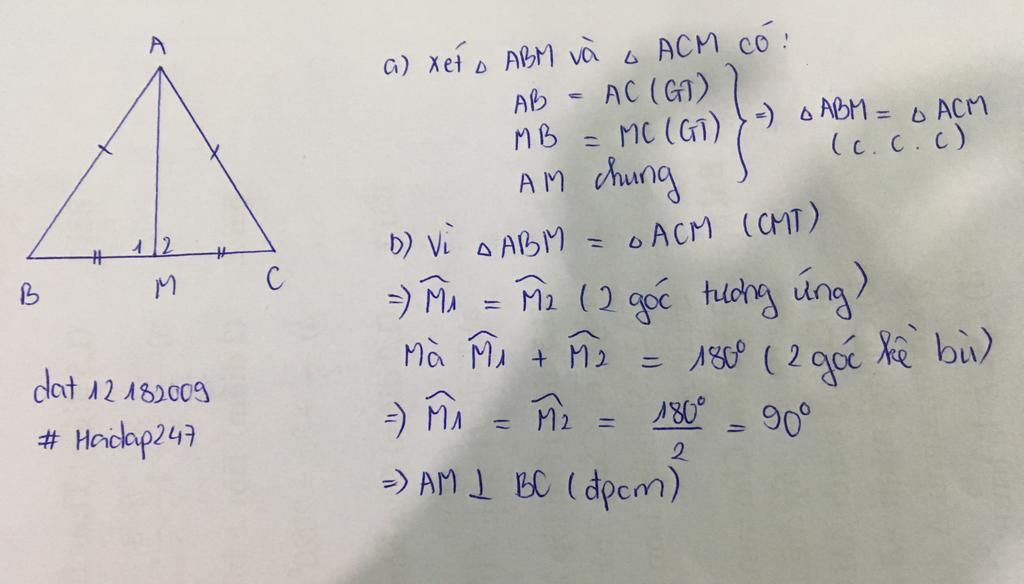 A
1 2
B M C
dat 12182009
# Hoidap247
a) Xét △ ABM và △ ACM có:
AB = AC (GT)
MB = MC (GT)
AM chung
=) △ ABM = △ ACM
(c.c.c)
b) Vì △ ABM = △ ACM (CMT)
=) M̂1 = M̂2 (2 góc tương ứng)
Mà M̂1 + M̂2 = 180° (2 góc kề bù)
=) M̂1 = M̂2 = 180°/2 = 90°
=) AM ⊥ BC (đpcm)